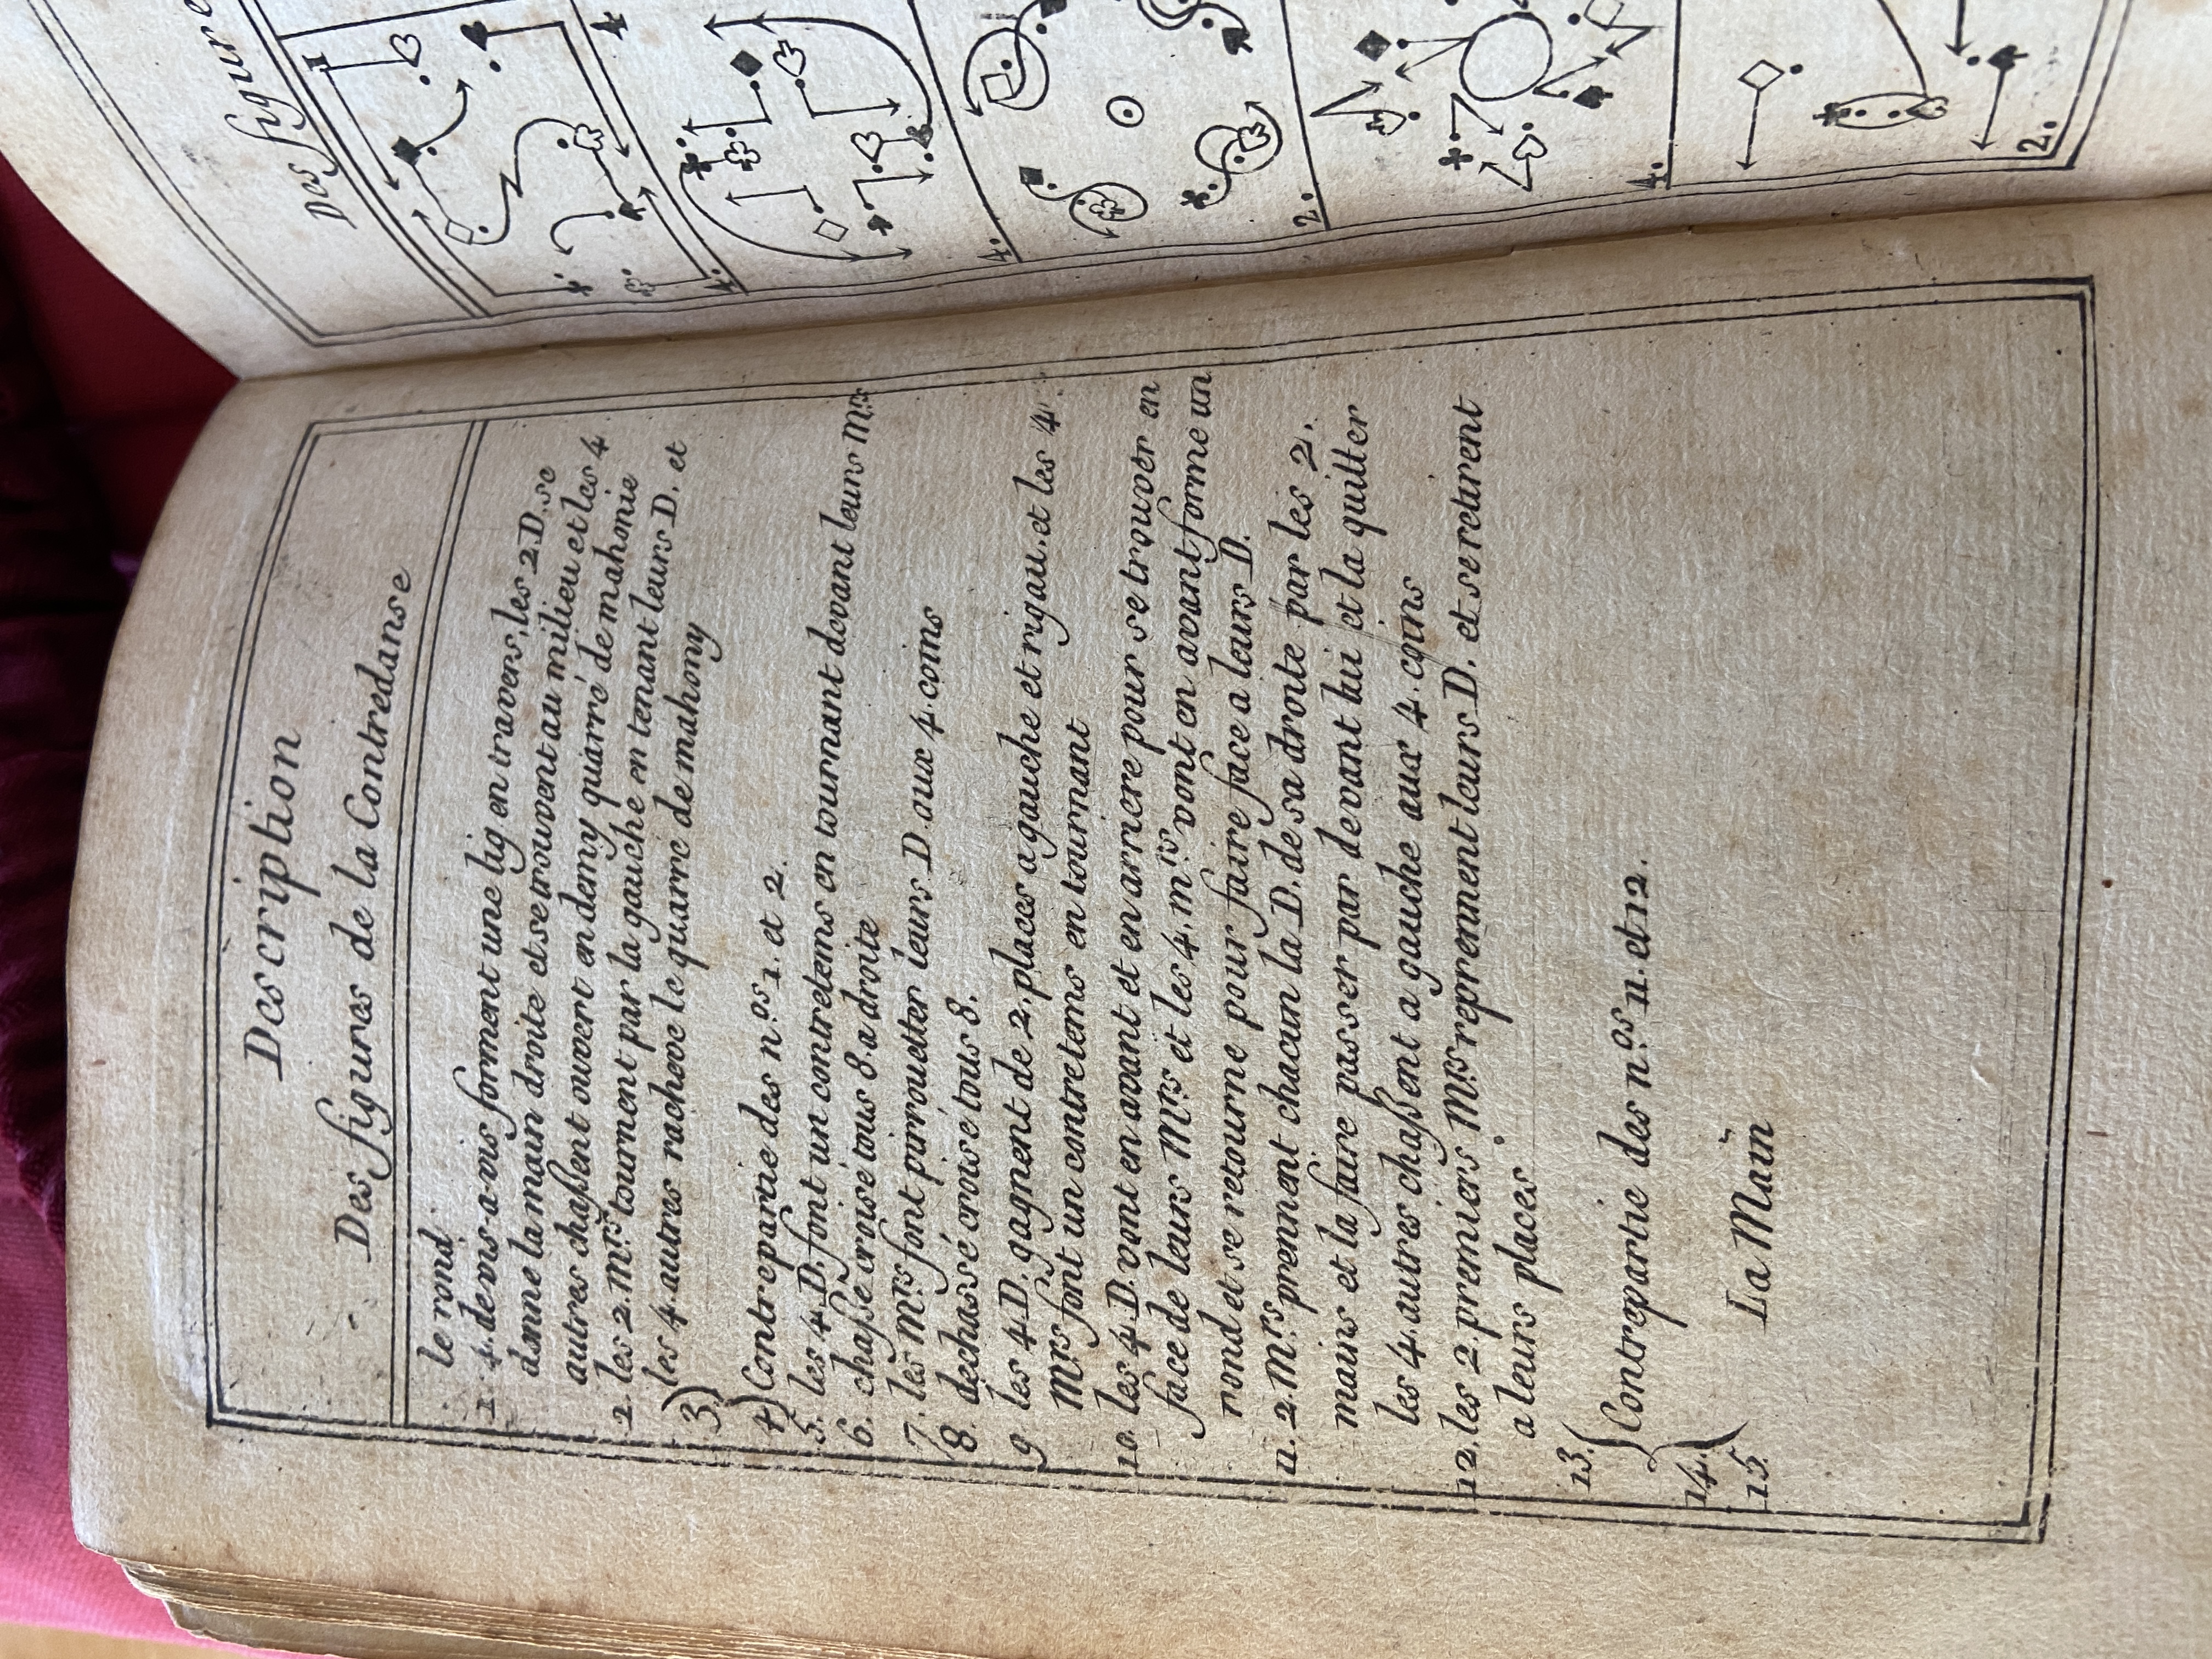 Description
Des figures de la Contredanse
le rond
1 4. de vis-a-vis forment une lig en travers, les 2 D. se
donne la main droite et se trouvent au milieu et les 4
autres chassent ouvert en demy quarré de mahonie
2. les 2. Mrs tournent par la gauche en tenant leurs D. et
les 4. autres racheve le quarré de mahony
3)
4) Contrepartie des n.os 1. et 2.
5. les 4 D. font un contretems en tournant devant leurs Mrs
6. chasse croisé tous 8. a droite
7. les Mrs font pirouetter leurs D. aux 4. coins
8. dechassé croisé tous 8.
9 les 4 D. gagnent de 2. places a gauche et rigau. et les 4
Mrs font un contretems en tournant
10. les 4. D. vont en avant et en arriere pour se trouver en
face de leurs Mrs et les 4. mrs vont en avant forme un
rond et se retourne pour faire face a leurs D.
11. 2. Mrs prennent chacun la D. de sa droite par les 2.
mains et la faire passer par devant lui et la quitter
les 4. autres chassent a gauche aux 4. coins
12. les 2. premiers Mrs reprennent leurs D. et se retirent
a leurs places
13. { Contrepartie des n.os 11. et 12.
14.
15. La Main
Des figure
1
4
4.
4.
2.
4.
2.